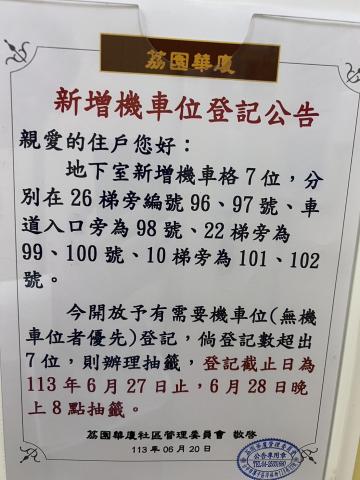 荔園華廈
新增機車位登記公告
親愛的住戶您好：
地下室新增機車格7位，分
別在26梯旁編號96、97號、車
道入口旁為98號、22梯旁為
99、100號、10梯旁為101、102
號。
今開放予有需要機車位(無機
車位者優先)登記，倘登記數超出
7位，則辦理抽籤，登記截止日為
113年6月27日止，6月28日晚
上8點抽籤。
荔園華廈社區管理委員會 敬啓
113年06月20日
公告專用章